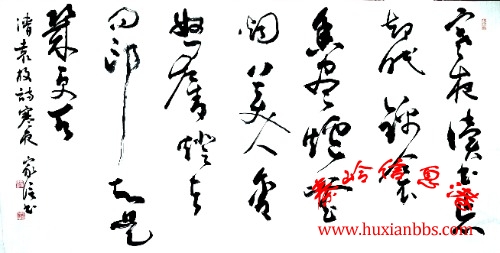 寒夜读书忘
却眠錦衾
香尽炉無
烟美人含
怒奪燈去
問郎知是
幾更天
清袁枚詩寒夜
www.huxianbbs.com